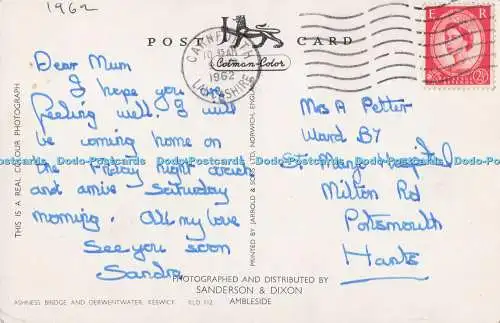 1962
POST CARD
Cotman-Color
CARNFORTH
1962
LANCASHIRE
E R
2½
Dear Mum
I hope you are
feeling well. I will
be coming home on
the Friday night coach
and arrive Saturday
morning. All my love
See you soon
Sandra
Mrs A Petter
Ward B7
St. Marys Hospital
Milton Rd
Portsmouth
Hants
THIS IS A REAL COLOUR PHOTOGRAPH
PRINTED BY JARROLD & SONS LTD. NORWICH, ENGLAND
PHOTOGRAPHED AND DISTRIBUTED BY
SANDERSON & DIXON
AMBLESIDE
ASHNESS BRIDGE AND DERWENTWATER, KESWICK. KLD 112
Dodo-Postcards Dodo-Postcards Dodo-Postcards Dodo-Postcards